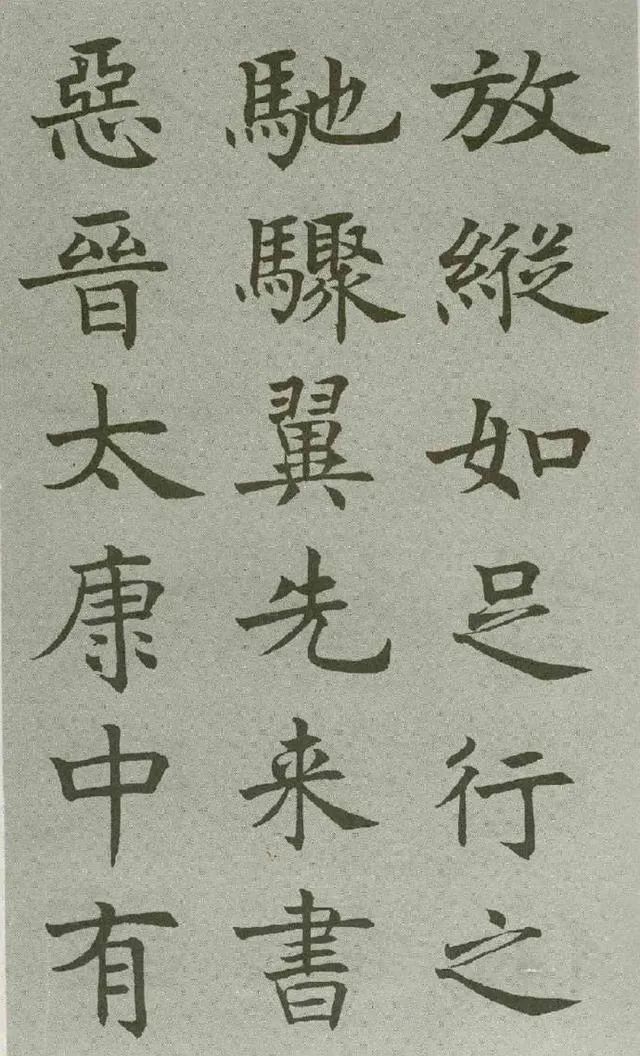 放縱如足行之
馳驟翼先来書
惡晉太康中有